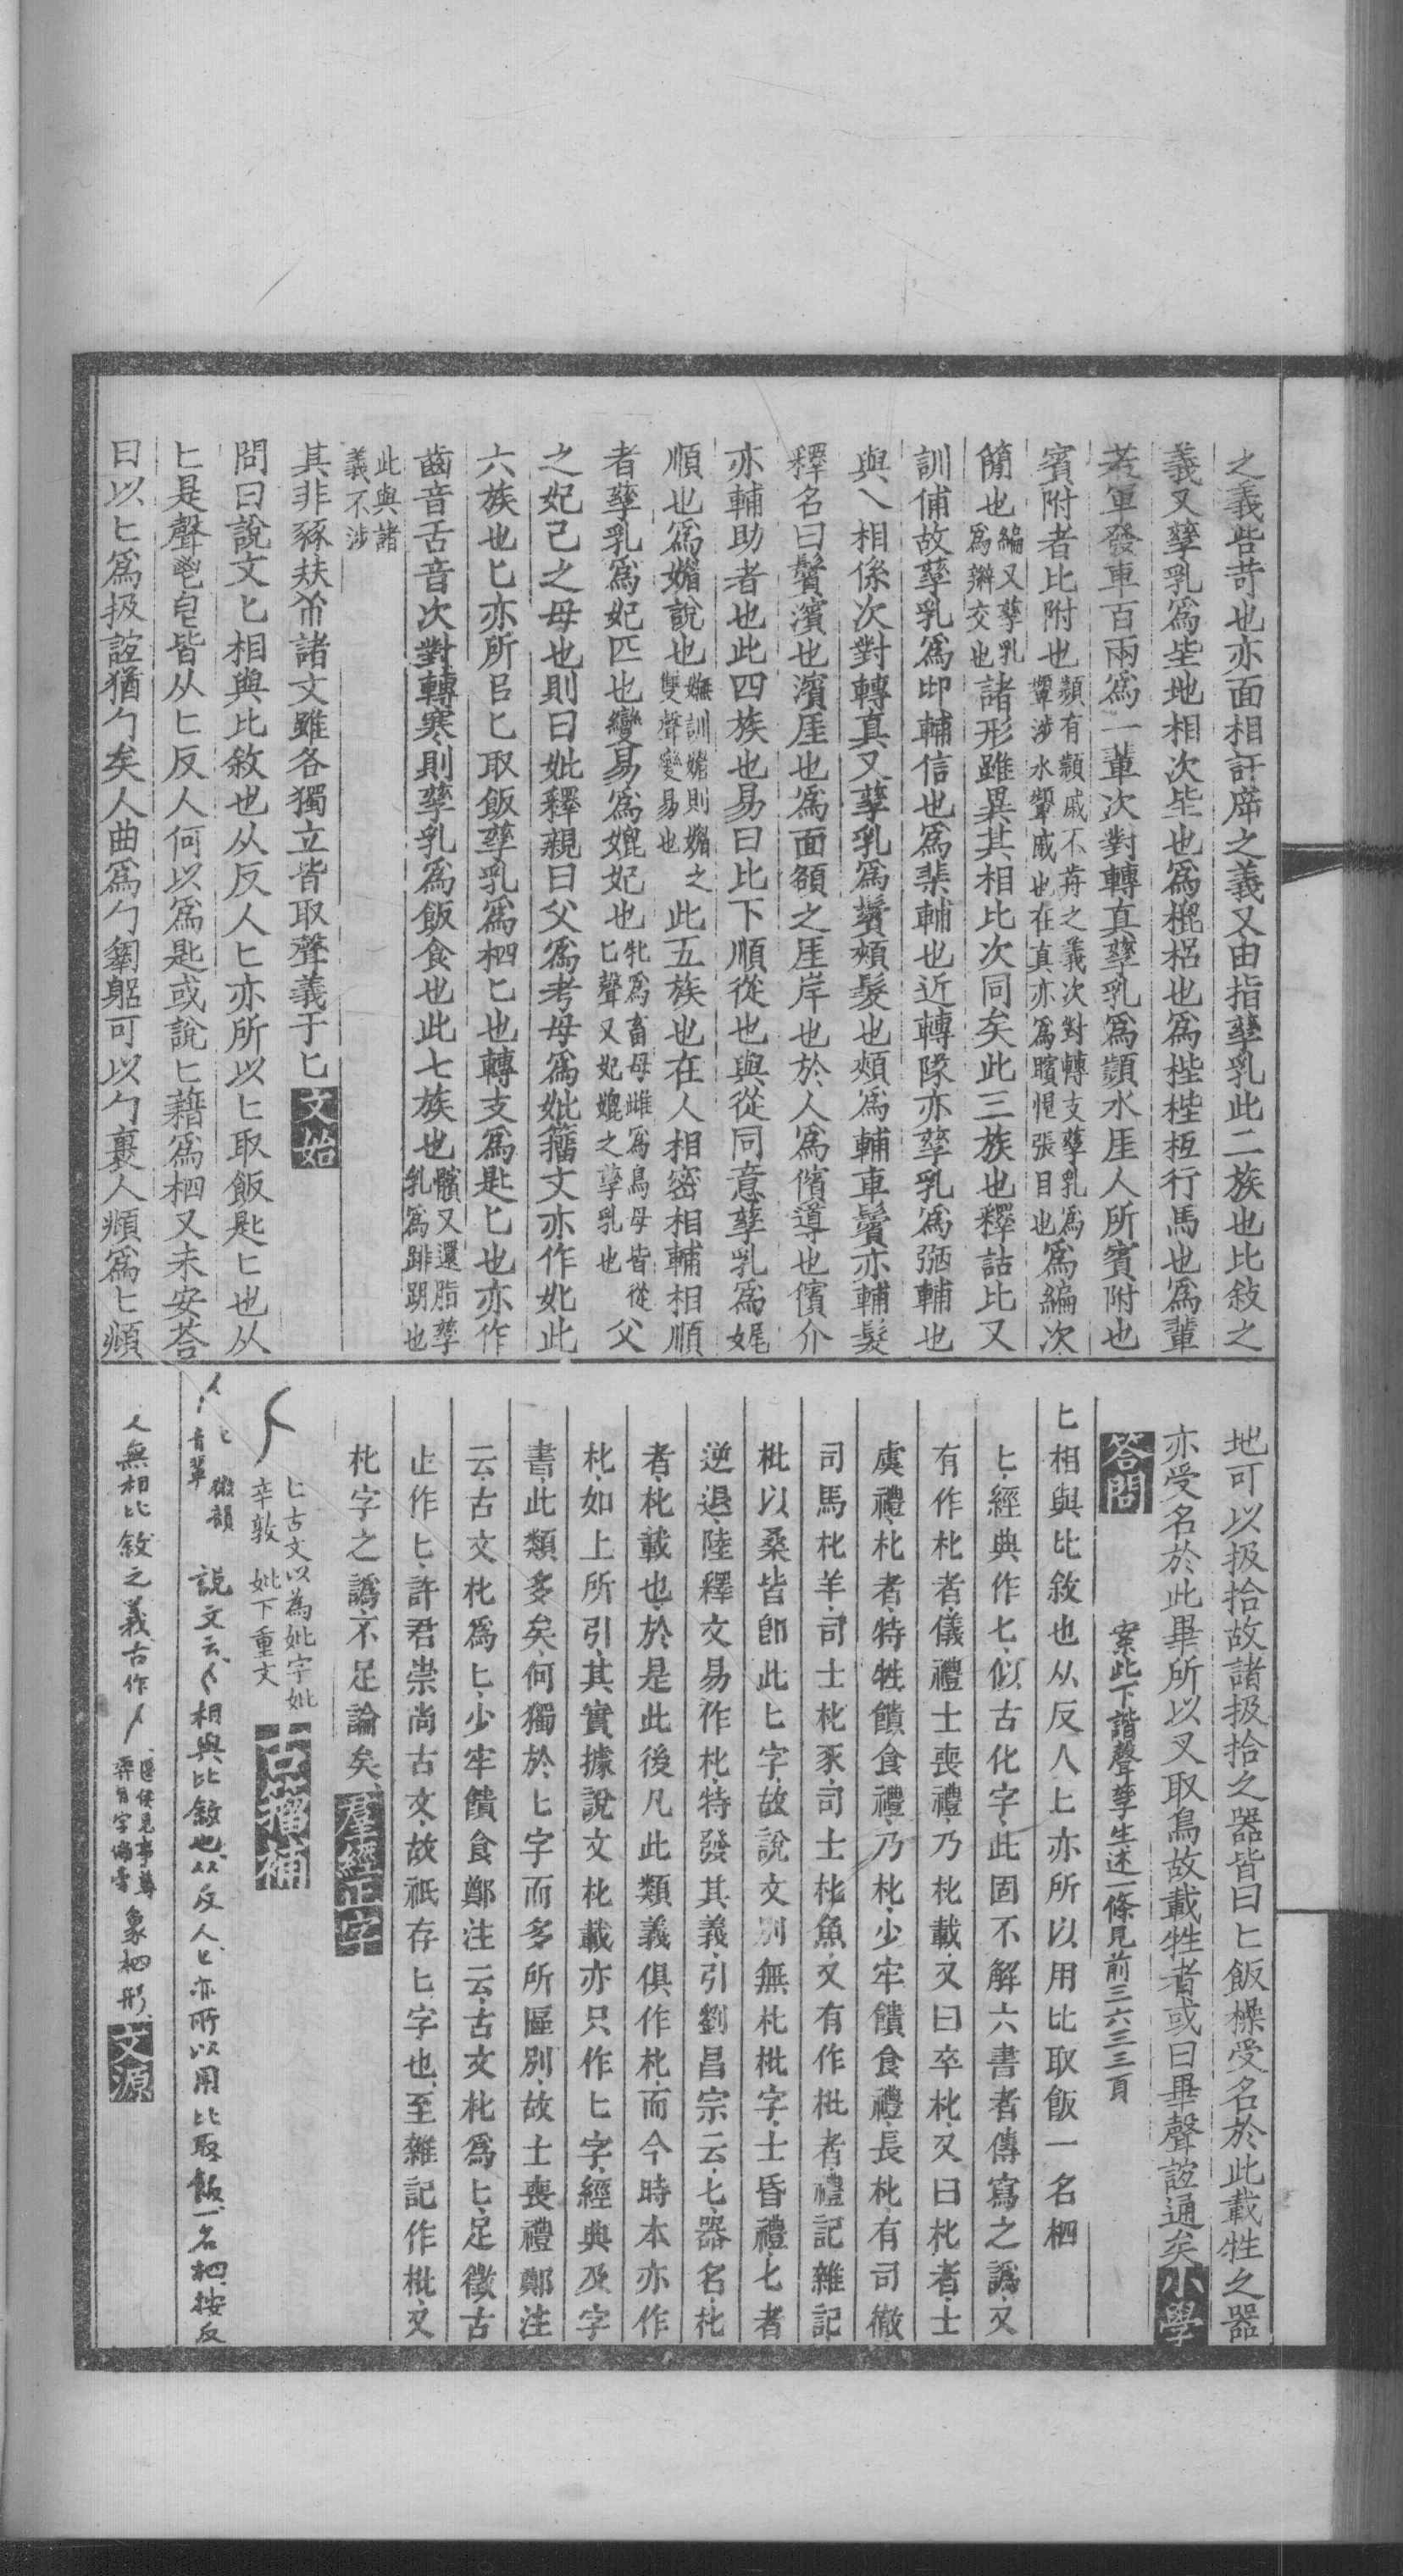 之義呰苛也亦面相訶㡿之義又由指孳乳此二族也比敍之
義又孳乳爲坒地相次坒也爲梐梠也爲梐梐枑行馬也爲輩
若軍發車百兩爲一輩次對轉真孳乳爲顮水厓人所賓附也
賓附者比附也顮有顮戚不歬之義次對轉支孳乳爲
顰涉水顰戚也在真亦爲矉恨張目也爲編次
簡也編又孳乳
爲辮交也諸形雖異其相比次同矣此三族也釋詁比又
訓俌故孳乳爲𠨒輔信也爲棐輔也近轉隊亦孳乳爲弼輔也
與乀相係次對轉真又孳乳爲䰖頰髮也頰爲輔車鬢亦輔髮
釋名曰鬢濱也濱厓也爲面額之厓岸也於人爲儐導也儐介
亦輔助者也此四族也易曰比下順從也與從同意孳乳爲娓
順也爲媚說也嫵訓媚則媚之
雙聲變易也此五族也在人相密相輔相順
者孳乳爲妃匹也變易爲媲妃也牝爲畜母雌爲鳥母皆從
匕聲又妃媲之孳乳也父
之妃己之母也則曰妣釋親曰父爲考母爲妣籀文亦作𡚧此
六族也匕亦所㠯匕取飯孳乳爲柶匕也轉支爲匙匕也亦作
齒音舌音次對轉寒則孳乳爲飯食也此七族也髕又還脂孳
乳爲跀跀也
此與諸
義不涉
其非豩㚘㠺諸文雖各獨立皆取聲義于匕文始
問曰說文匕相與比敘也从反人匕亦所以匕取飯匙匕也从
匕是聲鬯皀皆从匕反人何以爲匙或說匕藉爲柶又未安荅
曰以匕爲扱誼猶勹矣人曲爲勹匑躳可以勹裹人頫爲匕頫
地可以扱拾故諸扱拾之器皆曰匕飯橾受名於此載牲之器
亦受名於此畢所以叉取鳥故載牲者或曰畢聲誼通矣小學
答問 案此下諧聲孳生述一條見前三六三三頁
匕相與比敘也从反人匕亦所以用比取飯一名柶
匕經典作七似古化字此固不解六書者傳寫之譌又
有作朼者儀禮士喪禮乃朼載又曰卒朼又曰朼者士
虞禮朼者特牲饋食禮乃朼少牢饋食禮長朼有司徹
司馬朼羊司士朼豕司士朼魚又有作枇者禮記雜記
枇以桑皆卽此匕字故說文別無朼枇字士昏禮七者
逆退陸釋文易作朼特發其義引劉昌宗云七器名朼
者朼載也於是此後凡此類義俱作朼而今時本亦作
朼如上所引其實據說文朼載亦只作匕字經典及字
書此類多矣何獨於匕字而多所區別故士喪禮鄭注
云古文朼爲匕少牢饋食鄭注云古文朼爲匕足徵古
止作匕許君崇尚古文故祇存匕字也至雜記作枇又
朼字之譌不足論矣羣經正字
匕古文以為妣字妣
辛敦 妣下重文 古籀補
匕 微韻
音輩 說文云匕相與比敘也从反人匕亦所以用比取飯一名柶按反
人無相比敘之義古作匕 象柶形文源